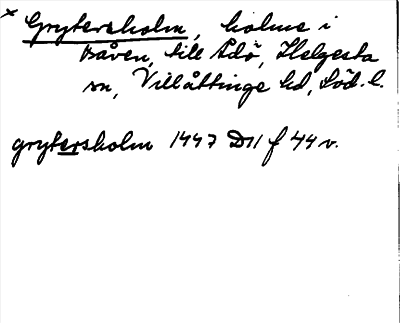 × Grytersholm, holme i
Båven, till Edö, Helgesta
sn, Villåttinge hd, Söd. l.
grytersholm 1447 D11 f 44 v.